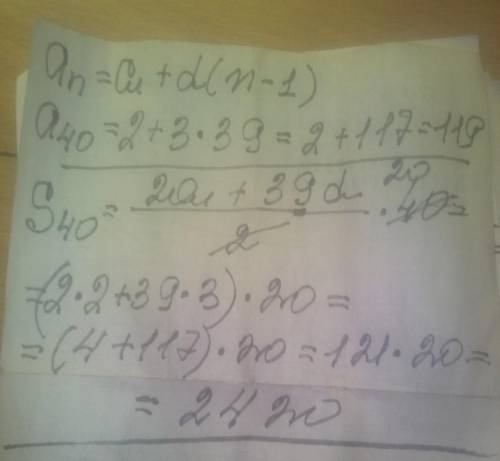 aₙ = a₁ + d(n - 1)
a₄₀ = 2 + 3 · 39 = 2 + 117 = 119
S₄₀ = (2a₁ + 39d) / 2 · 40 = 20
= (2 · 2 + 39 · 3) · 20 =
= (4 + 117) · 20 = 121 · 20 =
= 2420